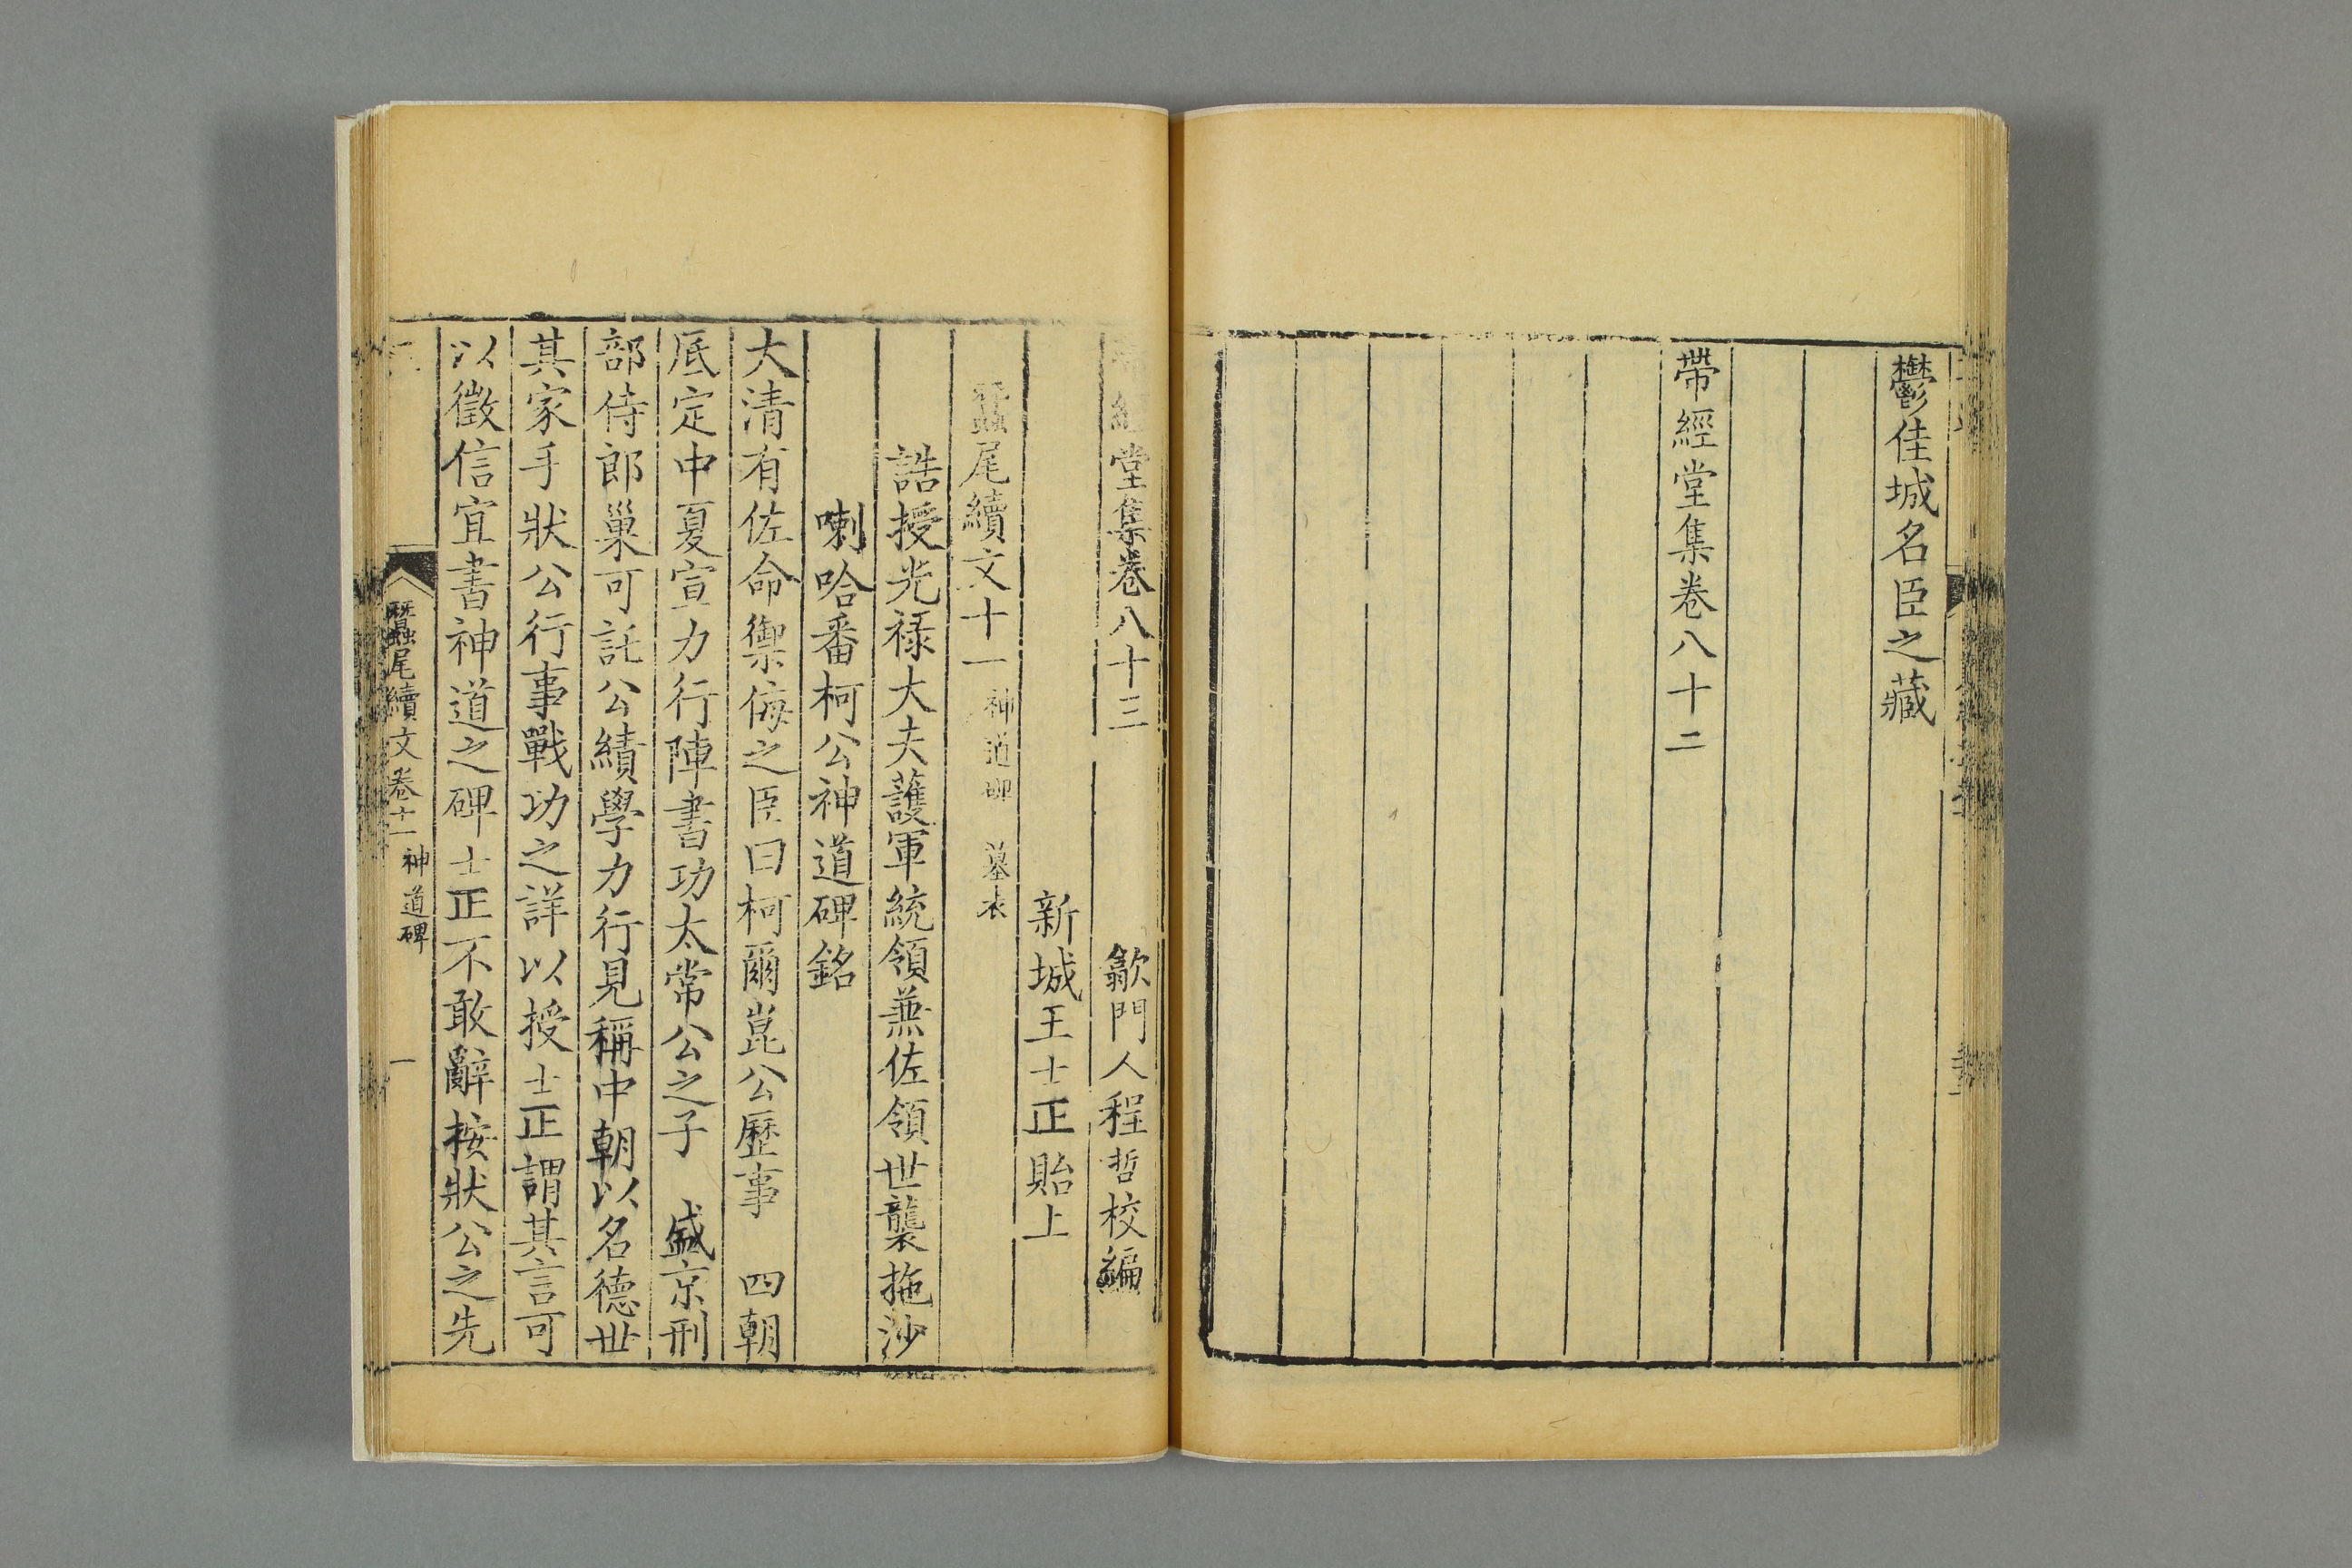 鬱佳城名臣之藏
帶經堂集卷八十二
經堂集卷八十三 歙門人程哲校編
新城王士正貽上
蠶尾續文十一 神道碑 墓表
誥授光祿大夫護軍統領兼佐領世襲拖沙
喇哈番柯公神道碑銘
大清有佐命禦侮之臣曰柯爾崑公歷事 四朝
底定中夏宣力行陣書功太常公之子 盛京刑
部侍郎巢可託公績學力行見稱中朝以名德世
其家手狀公行事戰功之詳以授士正謂其言可
以徵信宜書神道之碑士正不敢辭按狀公之先
蠶尾續文卷十一 神道碑 一